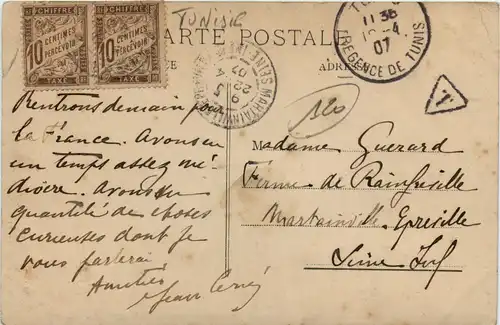 CHIFFRE
10
CENTIMES
A PERCEVOIR
TAXE
CHIFFRE
10
CENTIMES
A PERCEVOIR
TAXE
TUNISIE
CARTE POSTALE
ADRESSE
11 35
4
07
REGENCE DE TUNIS
MARTAINVILLE
9 5
22 4
07
T
120
Rentrons demain pour
la France. Avons eu
un temps assez mé
diocre. Avons vu
quantité de choses
curieuses dont je
vous parlerai
Amitiés
Jean
Madame Guerard
Ferme de Rainfreville
Martainville Epreville
Seine Inf